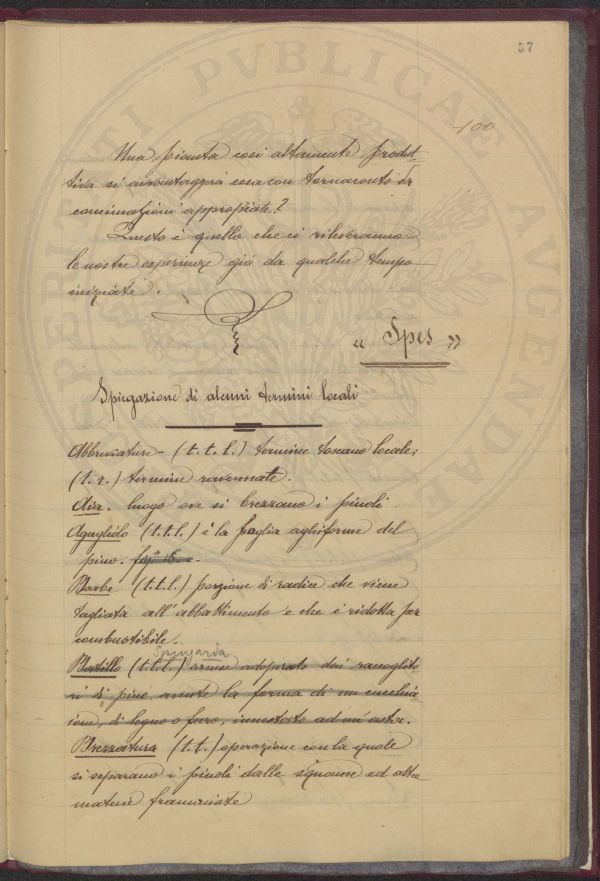 57
100
Una pianta così altamente produt-
tiva si avvantaggerà essa con tornaconto da
concimazioni appropriate?
Questo è quello che ci rileveranno
le nostre esperienze già da qualche tempo
iniziate.
« Spes »
Spiegazione di alcuni termini locali
Abbreviature - (t. t. l.) termine toscano locale;
(t. r.) termine ravennate.
Aia. luogo ove si brezzano i pinoli.
Agugliolo (t. t. l.) è la foglia aghiforme del
pino. fig.ª 15. -
Barbe (t. t. l.) porzione di radice che viene
tagliata all'abbattimento e che è ridotta per
combustibile. -
Spingarda
(t. t. l.) arme adoprate dai raccoglito
ri di pine avente la forma di un cucchia
ione, di legno o ferro, innestato ad un'asta.
Brezzatura (t. t.) operazione con la quale
si separano i pinoli dalle squame ed altre
materie frammiste
SPERIENTI PVBLICAE AVGENDAE